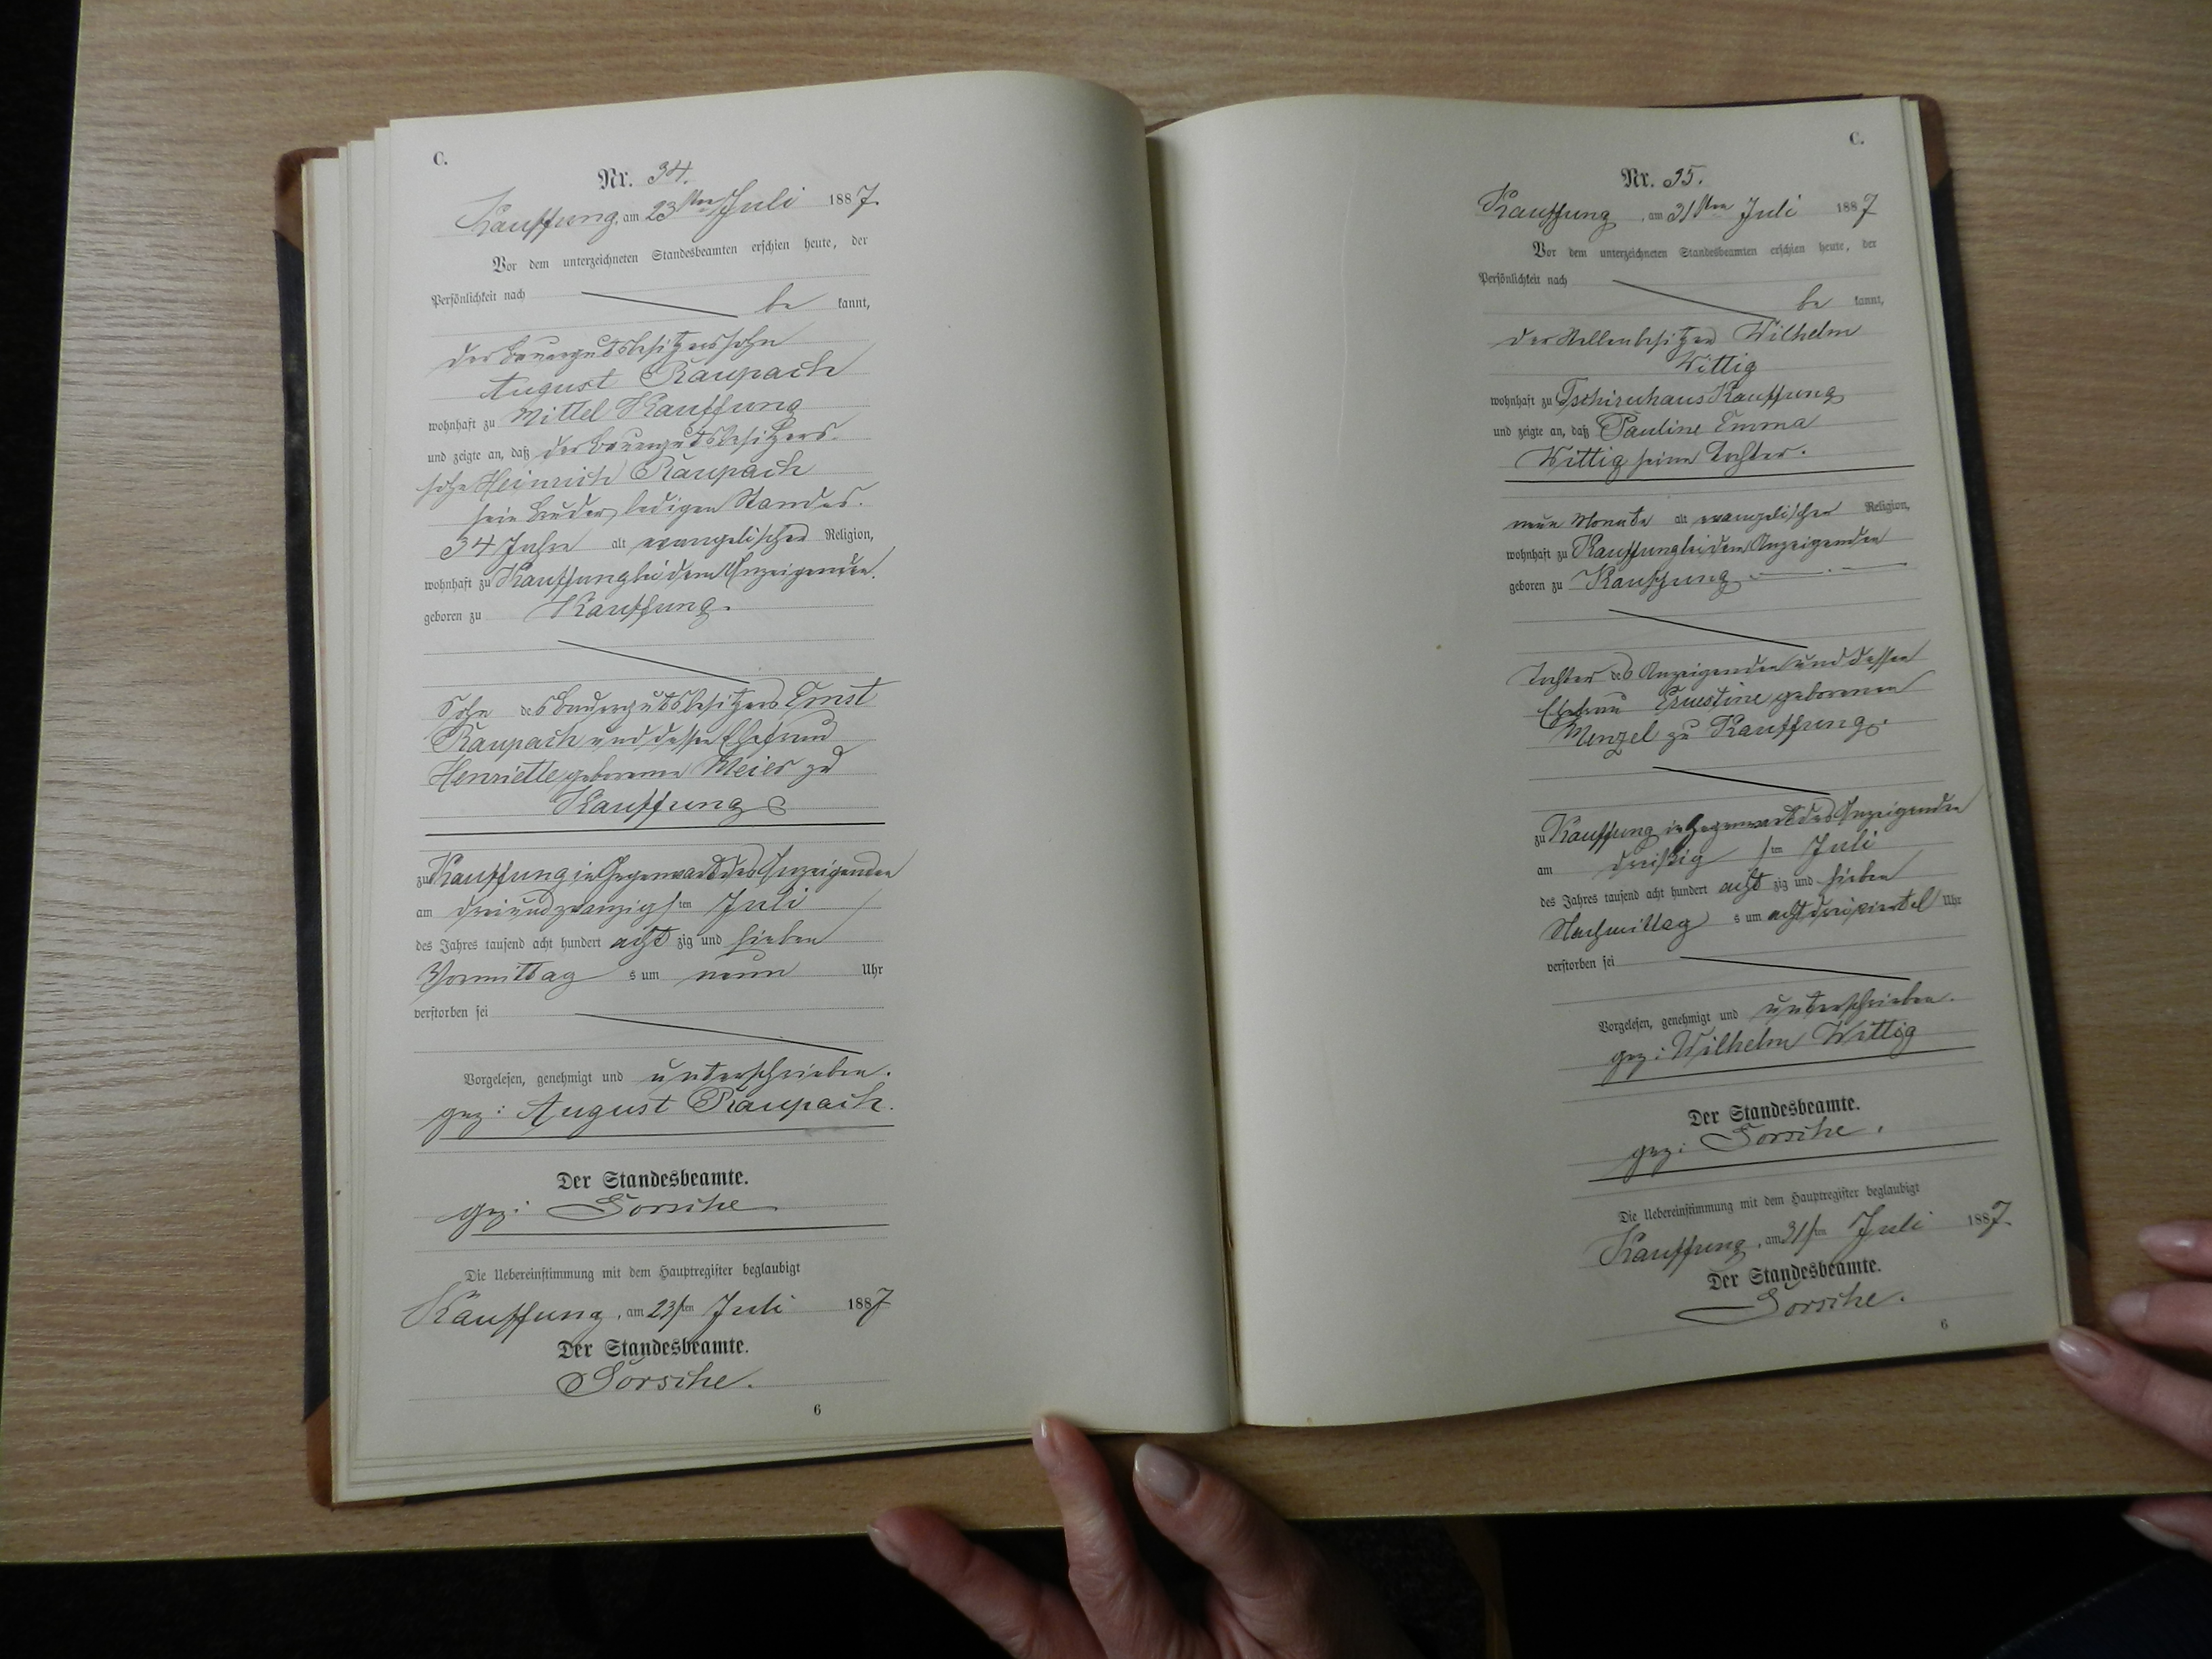 C.
Nr. 34.
Kauffung, am 23ten Juli 1887.
Vor dem unterzeichneten Standesbeamten erschien heute, der
Persönlichkeit nach
be kannt,
der Bauergutsbesitzerssohn
August Raupach
wohnhaft zu Mittel Kauffung
und zeigte an, daß der Bauergutsbesitzers-
sohn Heinrich Raupach
sein Bruder, ledigen Standes.
34 Jahre alt evangelischer Religion,
wohnhaft zu Kauffung bei dem Anzeigenden.
geboren zu Kauffung.
Sohn des Bauergutsbesitzers Ernst
Raupach und dessen Ehefrau
Henriette geborenen Meier zu
Kauffung
zu Kauffung in Gegenwart des Anzeigenden
am dreiundzwanzigsten Juli
des Jahres tausend acht hundert acht zig und sieben
Vormittag s um neun Uhr
verstorben sei
Vorgelesen, genehmigt und unterschrieben.
gez: August Raupach.
Der Standesbeamte.
gez: Gorsche
Die Uebereinstimmung mit dem Hauptregister beglaubigt
Kauffung, am 23sten Juli 1887
Der Standesbeamte.
Gorsche.
6
C.
Nr. 35.
Kauffung, am 31sten Juli 1887
Vor dem unterzeichneten Standesbeamten erschien heute, der
Persönlichkeit nach
be kannt,
der Stellenbesitzer Wilhelm
Wittig
wohnhaft zu Tschirnhaus Kauffung
und zeigte an, daß Pauline Emma
Wittig seine Tochter.
neun Monate alt evangelischer Religion,
wohnhaft zu Kauffung bei dem Anzeigenden
geboren zu Kauffung
Tochter des Anzeigenden und dessen
Ehefrau Ernestine geborenen
Menzel zu Kauffung.
zu Kauffung in Gegenwart des Anzeigenden
am dreißig sten Juli
des Jahres tausend acht hundert acht zig und sieben
Nachmittag s um acht dreiviertel Uhr
verstorben sei
Vorgelesen, genehmigt und unterschrieben.
gez: Wilhelm Wittig
Der Standesbeamte.
gez: Gorsche.
Die Uebereinstimmung mit dem Hauptregister beglaubigt
Kauffung, am 31sten Juli 1887.
Der Standesbeamte.
Gorsche.
6